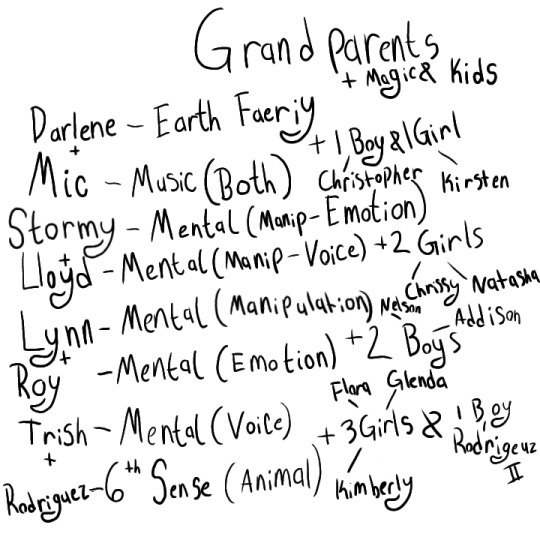 Grand parents
+ Magic & Kids
Darlene - Earth Faeriy
+
+ 1 Boy & 1 Girl
Mic - Music (Both)
Christopher Kirsten
Stormy - Mental (Manip-Emotion)
+
Lloyd - Mental (Manip-Voice) +2 Girls
Chrissy Natasha
Lynn - Mental (Manipulation)
+
Nelson Addison
Roy - Mental (Emotion) +2 Boys
Flora Glenda
Trish - Mental (Voice)
+
+ 3 Girls & 1 Boy
Rodrigeuz II
Rodriguez - 6th Sense (Animal)
Kimberly